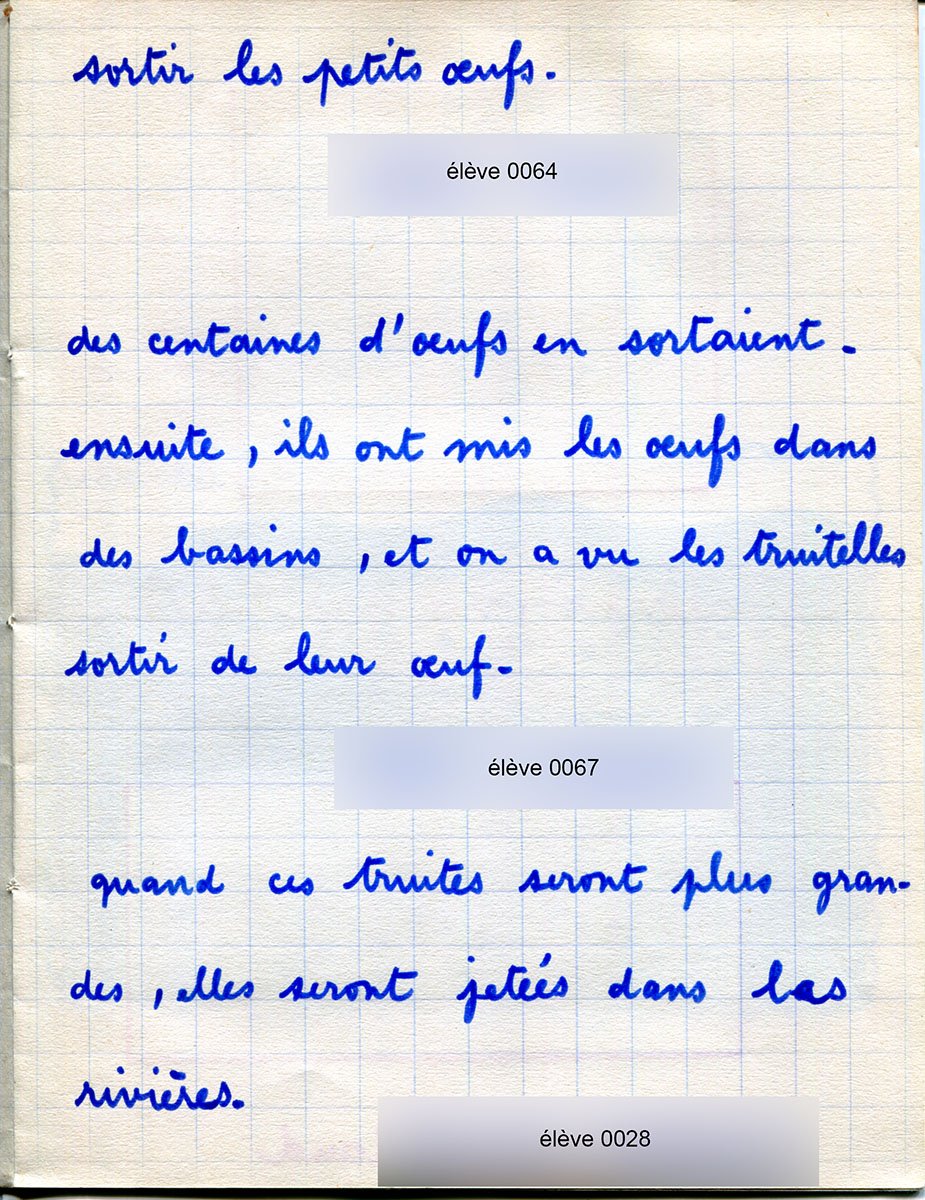 sortir les petits œufs.
élève 0064
des centaines d'œufs en sortaient.
ensuite, ils ont mis les œufs dans
des bassins, et on a vu les truitelles
sortir de leur œuf.
élève 0067
quand ces truites seront plus gran-
des, elles seront jeteés dans las
rivières.
élève 0028